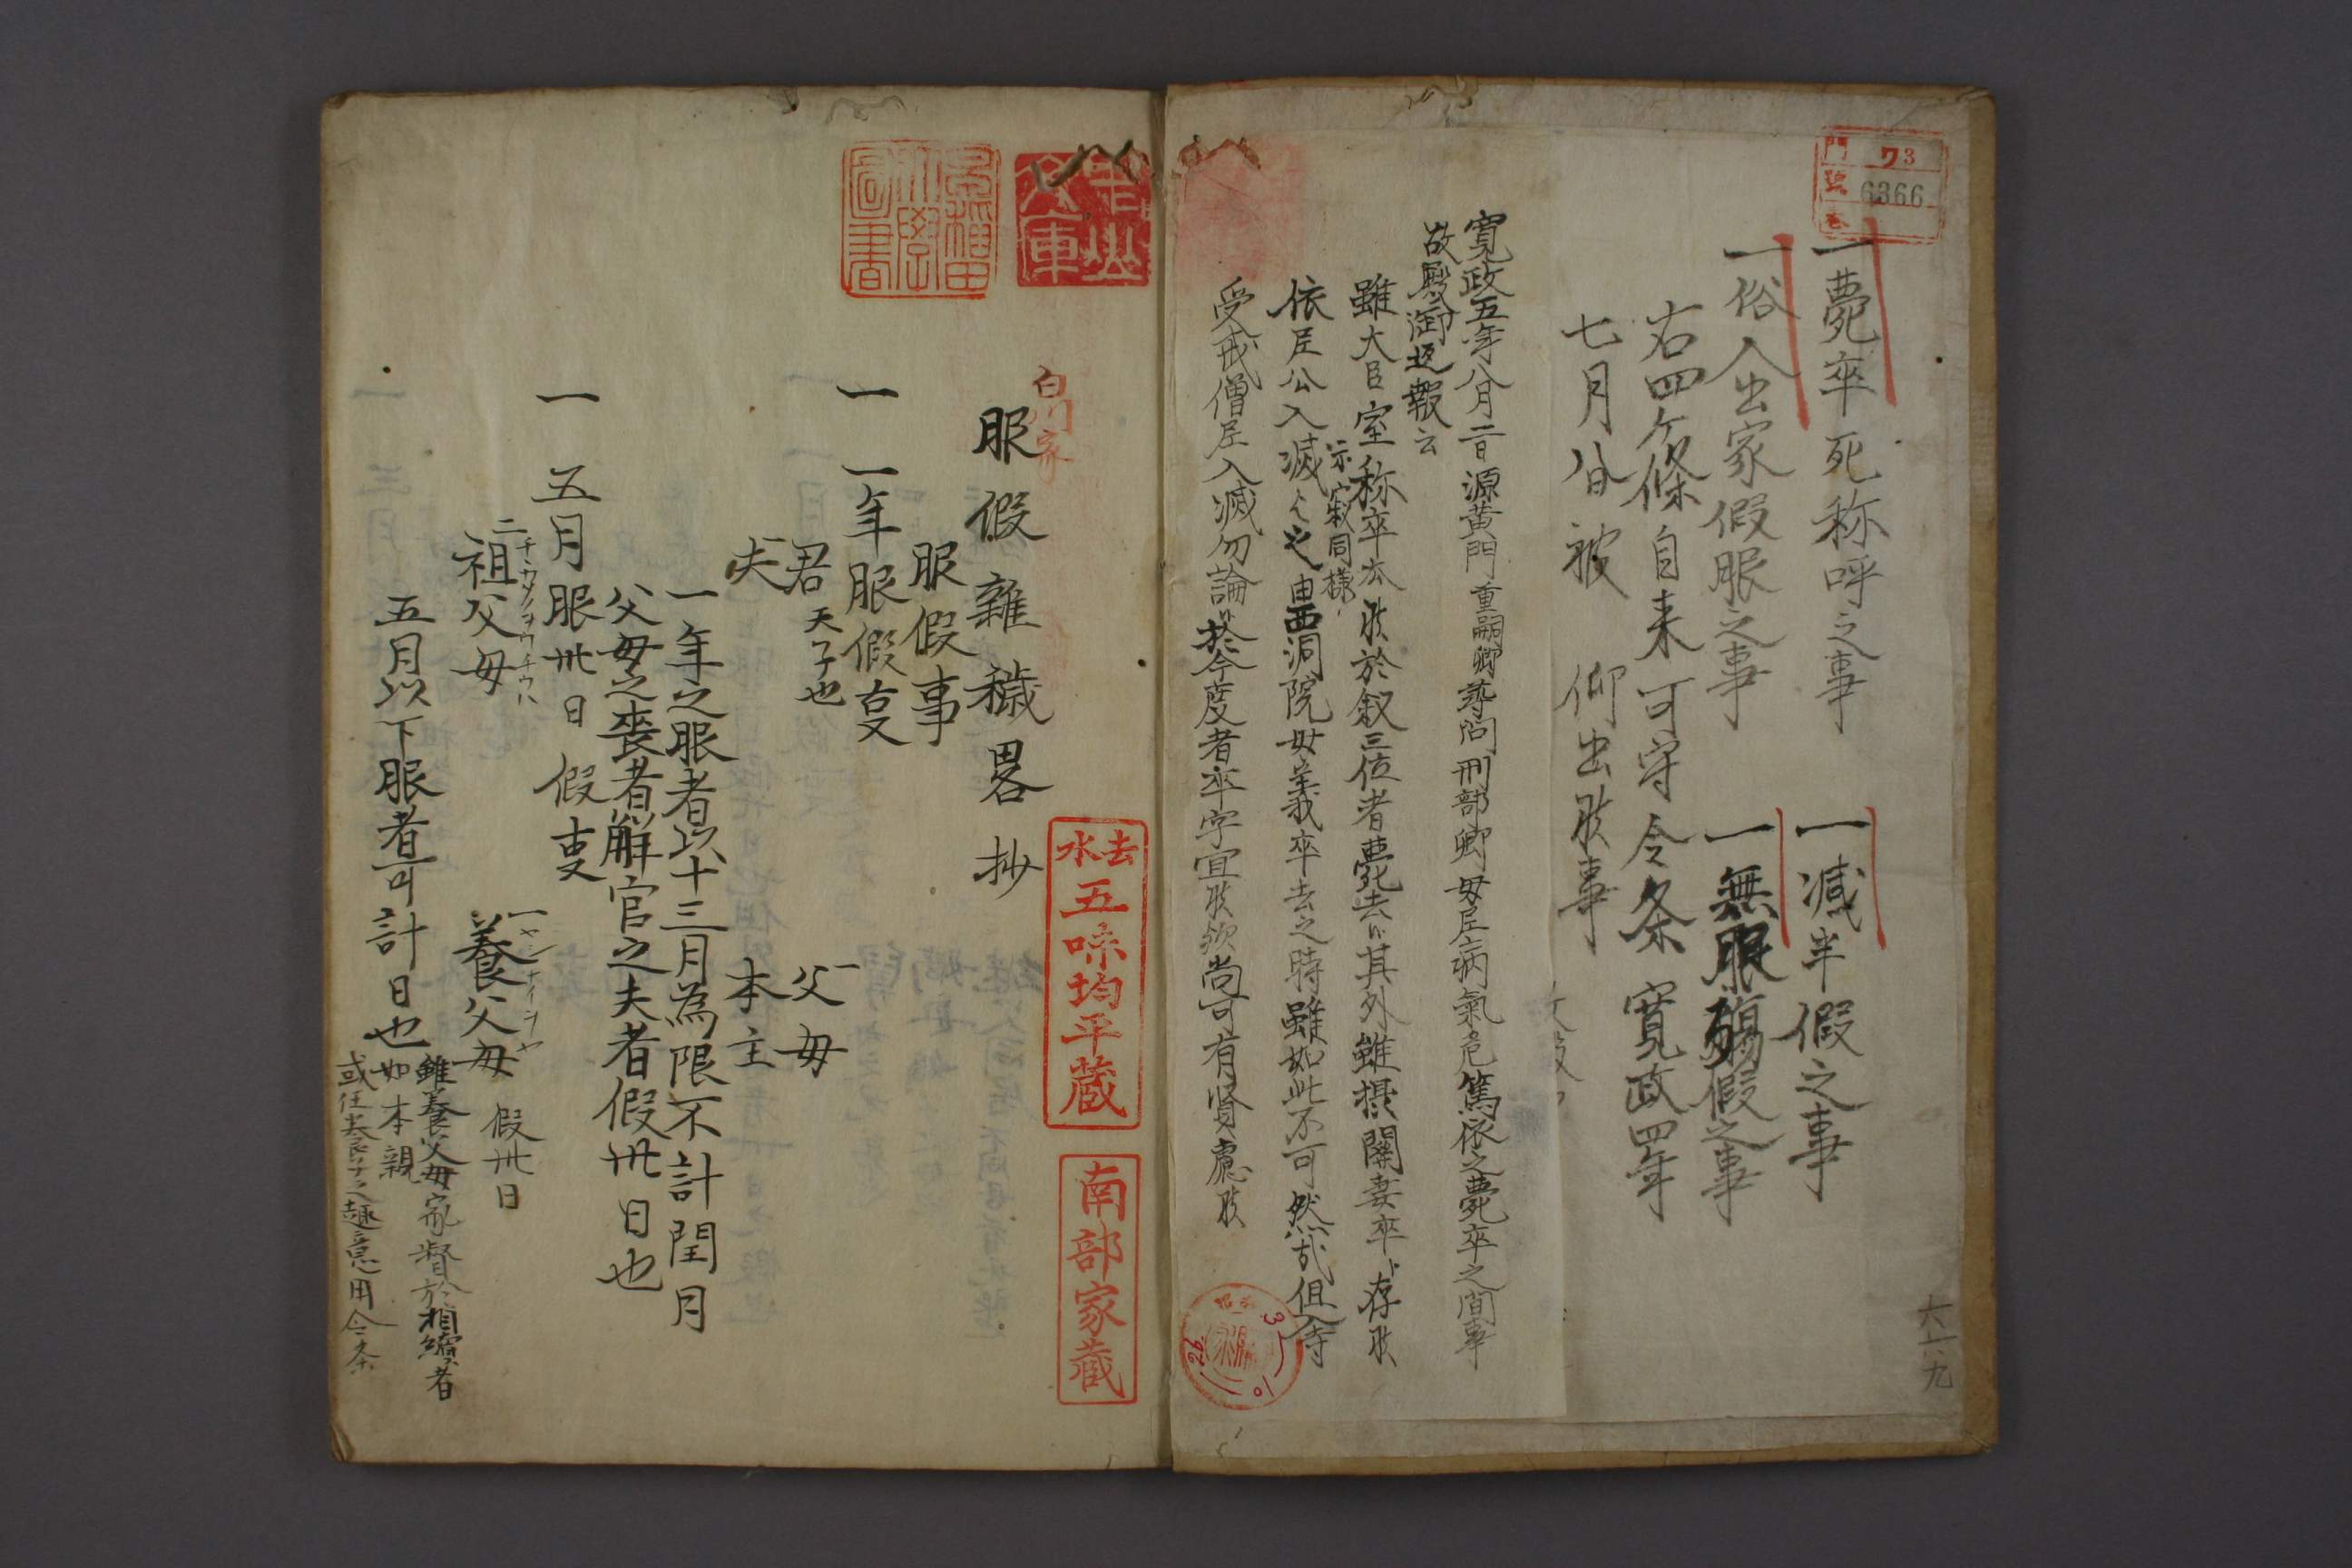 門 73
號 6366
巻
一薨卒死称呼之事
一減半假之事
一俗人出家假服之事
一無服殤假之事
右四ケ條自来可守令条 寛政四年
七月 被 仰出候事
寛政五年八月二日源黄門重嗣卿尋問刑部卿母尼病氣危篤依之薨卒之間事
故殿御返報云
雖大臣室称卒去候於叙三位者薨去ハ其外雖摂關妻卒ト存候
示寂同様
依尼公入滅之由西洞院母義卒去之時雖如此不可然哉但入寺
受戒僧尼入滅勿論ニ於今度者卒字宜候欤尚可有賢慮候
六六九
早稲田大學圖書
文庫
白川家
服假雜穢畧抄
服假事
一 一年服假叓
君 天子也
父母
夫
本主
一年之服者以十三月為限不計閏月
父母之喪者解官之夫者假卅日也
一 五月服卅日假叓
祖父母
養父母 假卅日
五月以下服者可計日也
雖養父母家督於相續者
如本親
或任養子之趣意用令条
去水 五味均平蔵
南部家蔵